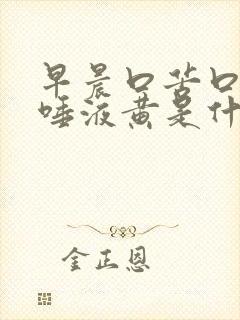 早晨口苦口
唾液黄是什
金正恩